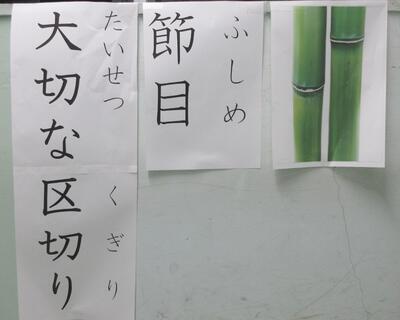 ふしめ
節目
たいせつ くぎり
大切な区切り